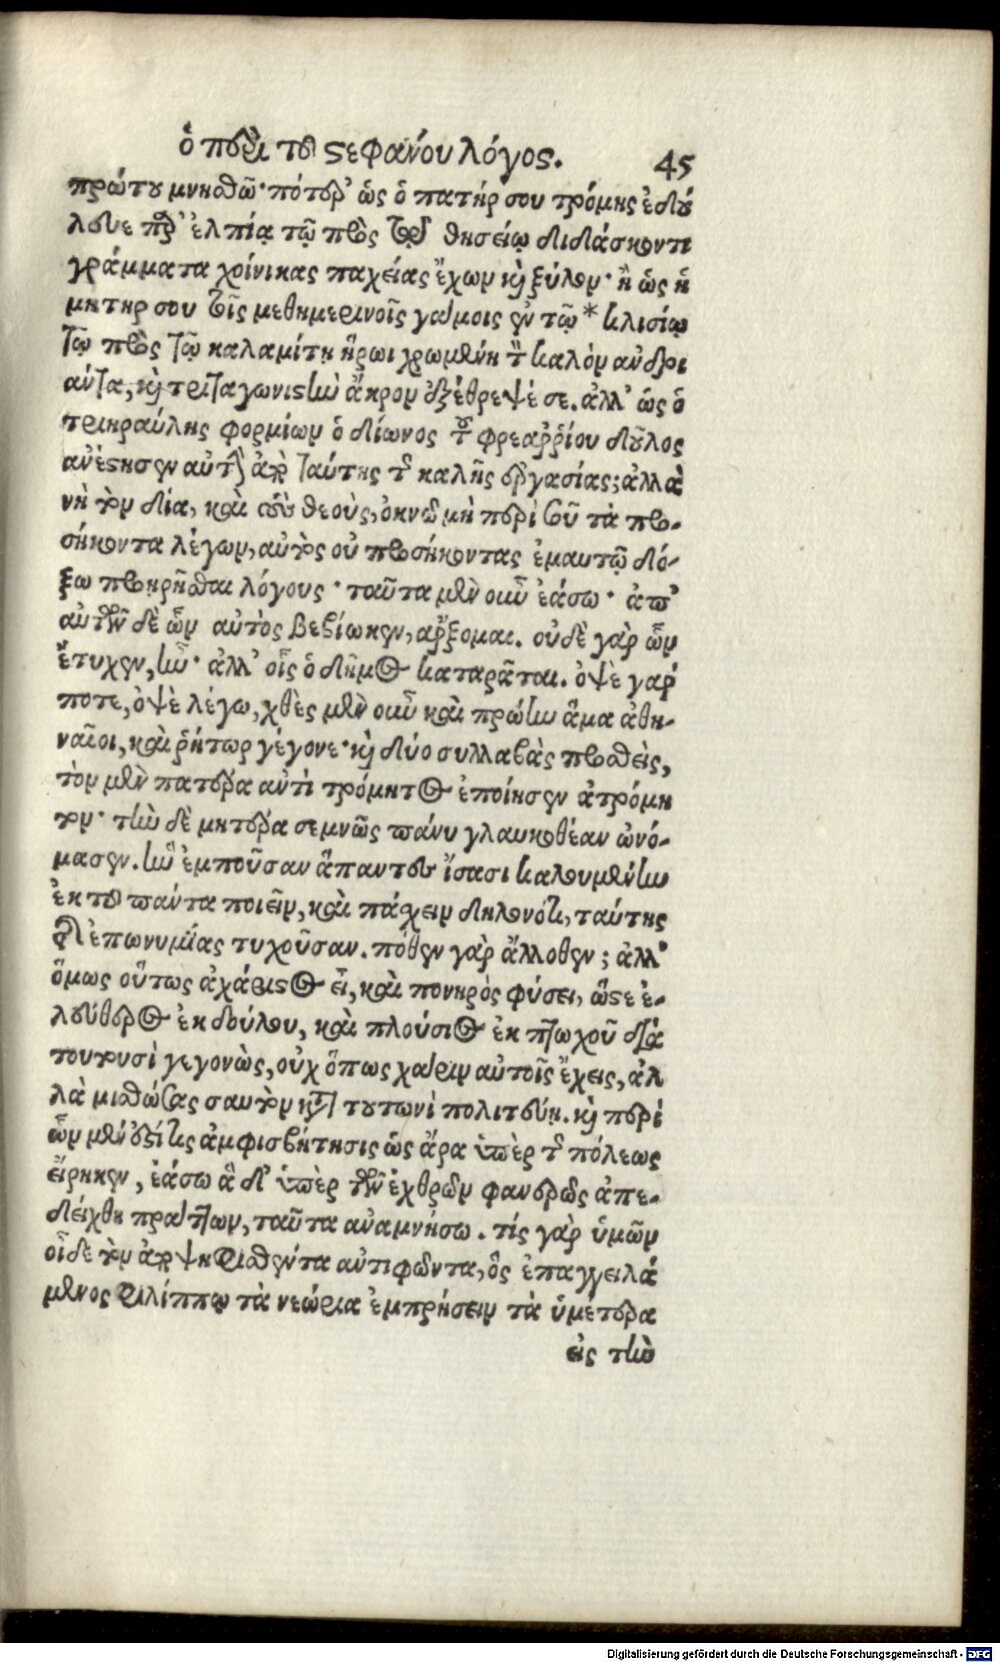 ὁ περὶ τοῦ στεφάνου λόγος. 45
πρώτου μνησθῶ· πότερ' ὡς ὁ πατήρ σου τρόμης ἐδού
λευε παρ' ἐλπίᾳ τῷ πρὸς τῷ θησείῳ διδάσκοντι
γράμματα χοίνικας παχείας ἔχων καὶ ξύλον· ἢ ὡς ἡ
μητηρ σου τοῖς μεθημερινοῖς γάμοις ἐν τῷ * κλισίῳ
τῷ πρὸς τῷ καλαμίτῃ ἥρωι χρωμένη τὸν καλὸν ἀνδρι
άντα, καὶ τριταγωνιστὴν ἄκρον ἐξέθρεψέ σε. ἀλλ' ὡς ὁ
τριηραύλης φορμίων ὁ δίωνος τοῦ φρεαῤῥίου δοῦλος
ἀνέστησεν αὐτὴν ἀπὸ ταύτης τῆς καλῆς ἐργασίας; ἀλλὰ
νὴ τὸν δία, καὶ τοὺς θεοὺς, ὀκνῶ μὴ περὶ σοῦ τὰ προ-
σήκοντα λέγων, αὐτὸς οὐ προσήκοντας ἐμαυτῷ δό-
ξω προῃρῆσθαι λόγους · ταῦτα μὲν οὖν ἐάσω · ἀπ'
αὐτῶν δὲ ὧν αὐτὸς βεβίωκεν, ἄρξομαι. οὐδὲ γὰρ ὧν
ἔτυχεν, ἦν· ἀλλ' οἷς ὁ δῆμος καταρᾶται. ὀψὲ γάρ
ποτε, ὀψὲ λέγω, χθὲς μὲν οὖν καὶ πρώην ἅμα ἀθη-
ναῖοι, καὶ ῥήτωρ γέγονε· καὶ δύο συλλαβὰς προσθεὶς,
τὸν μὲν πατέρα ἀντὶ τρόμητος ἐποίησεν ἀτρόμη
τον· τὴν δὲ μητέρα σεμνῶς πάνυ γλαυκοθέαν ὠνό-
μασεν. ἣν ἐμποῦσαν ἅπαντες ἴσασι καλουμένην
ἐκ τοῦ πάντα ποιεῖν, καὶ πάσχειν δηλονότι, ταύτης
τῆς ἐπωνυμίας τυχοῦσαν. πόθεν γὰρ ἄλλοθεν; ἀλλ'
ὅμως οὕτως ἀχάριστος εἶ, καὶ πονηρὸς φύσει, ὥστε ἐ-
λεύθερος ἐκ δούλου, καὶ πλούσιος ἐκ πτωχοῦ διὰ
τουτουσὶ γεγονὼς, οὐχ ὅπως χάριν αὐτοῖς ἔχεις, ἀλ
λὰ μισθώσας σαυτὸν κατὰ τουτωνὶ πολιτεύῃ. καὶ περὶ
ὧν μέν ἐστί τις ἀμφισβήτησις ὡς ἄρα ὑπὲρ τῆς πόλεως
εἴρηκεν, ἐάσω ἃ δ' ὑπὲρ τῶν ἐχθρῶν φανερῶς ἀπε-
δείχθη πράττων, ταῦτα ἀναμνήσω. τίς γὰρ ὑμῶν
οἶδε τὸν ἀποψηφισθέντα ἀντιφῶντα, ὃς ἐπαγγειλά
μενος φιλίππῳ τὰ νεώρια ἐμπρήσειν τὰ ὑμέτερα
εἰς τὴν
Digitalisierung gefördert durch die Deutsche Forschungsgemeinschaft - DFG